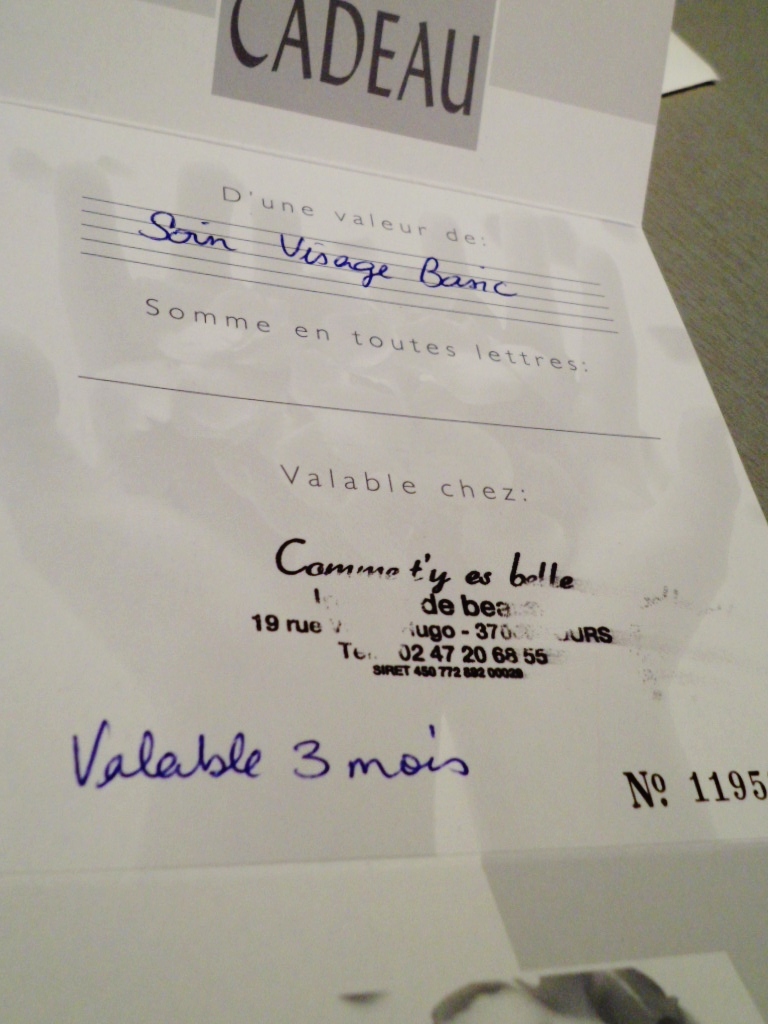 CADEAU
D'une valeur de:
Soin Visage Basic
Somme en toutes lettres:
Valable chez:
Comme t'y es belle
de
19 rue
02 47 20 68 55
SIRET 450 772 892 00029
Valable 3 mois
Nº 1195